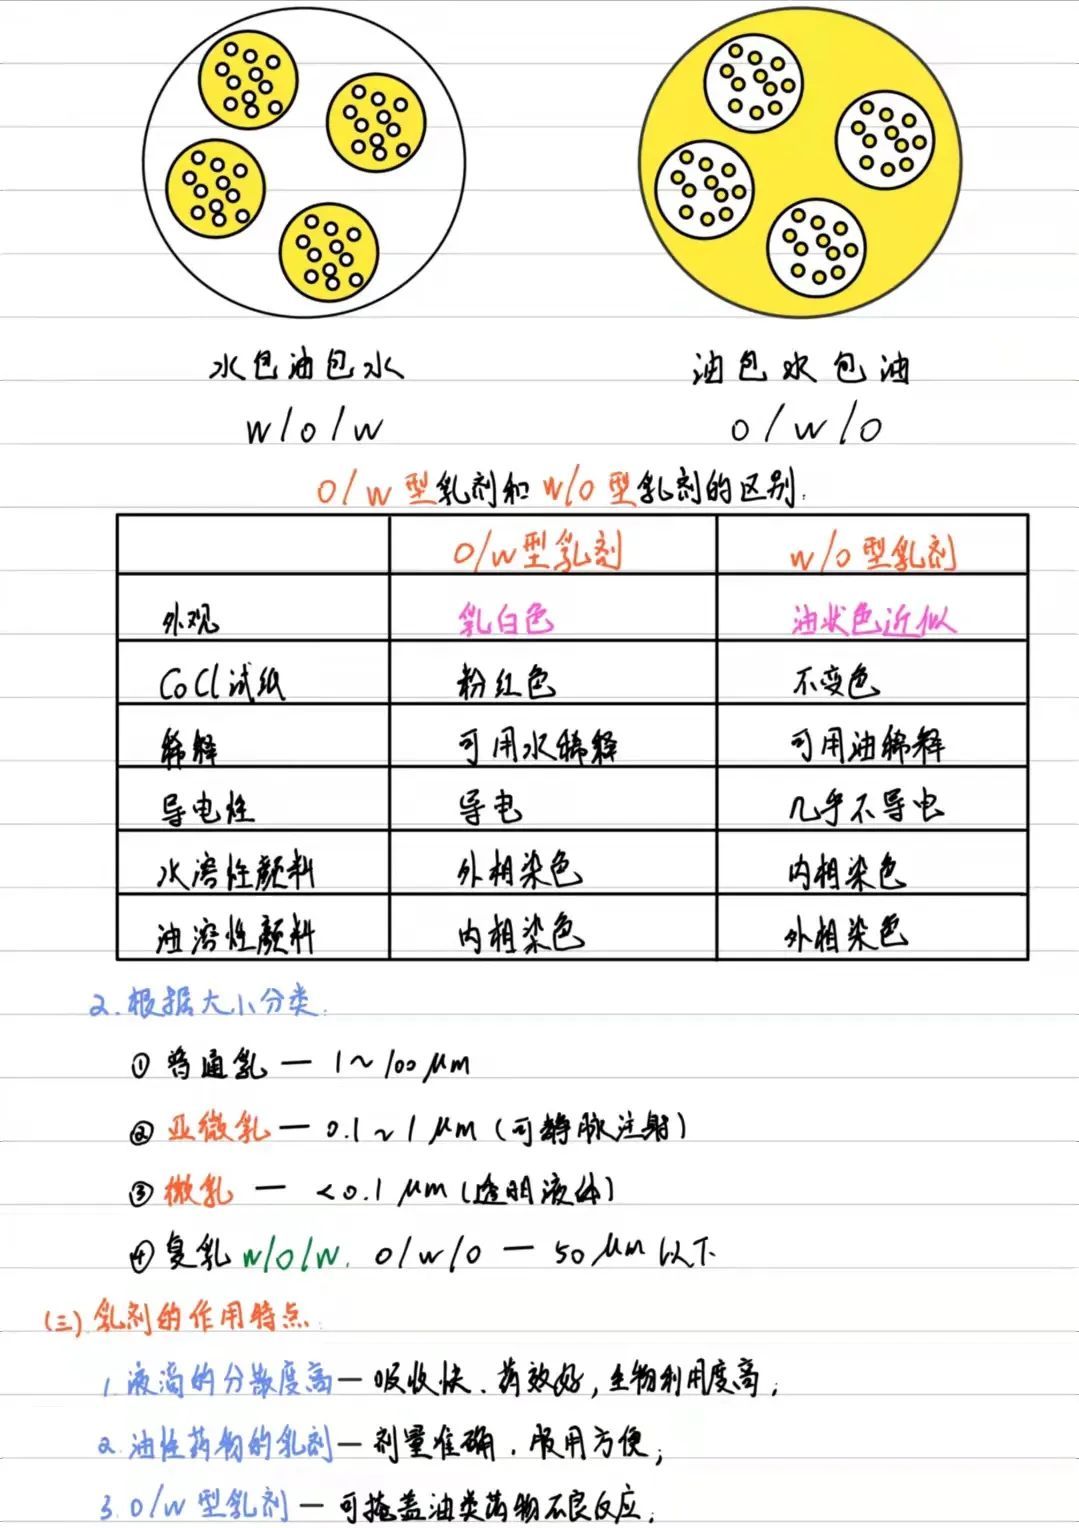 水包油包水 油包水包油
W/O/W O/W/O
O/W型乳剂和W/O型乳剂的区别:
O/W型乳剂 W/O型乳剂
外观 乳白色 油状色近似
CoCl试纸 粉红色 不变色
稀释 可用水稀释 可用油稀释
导电性 导电 几乎不导电
水溶性颜料 外相染色 内相染色
油溶性颜料 内相染色 外相染色
2.根据大小分类:
①普通乳— 1~100μm
②亚微乳— 0.1~1μm(可静脉注射)
③微乳— <0.1μm(透明液体)
④复乳 W/O/W. O/W/O — 50μm以下
(三)乳剂的作用特点:
1.液滴的分散度高—吸收快、药效好,生物利用度高;
2.油性药物的乳剂—剂量准确、服用方便;
3.O/W型乳剂—可掩盖油类药物不良反应;